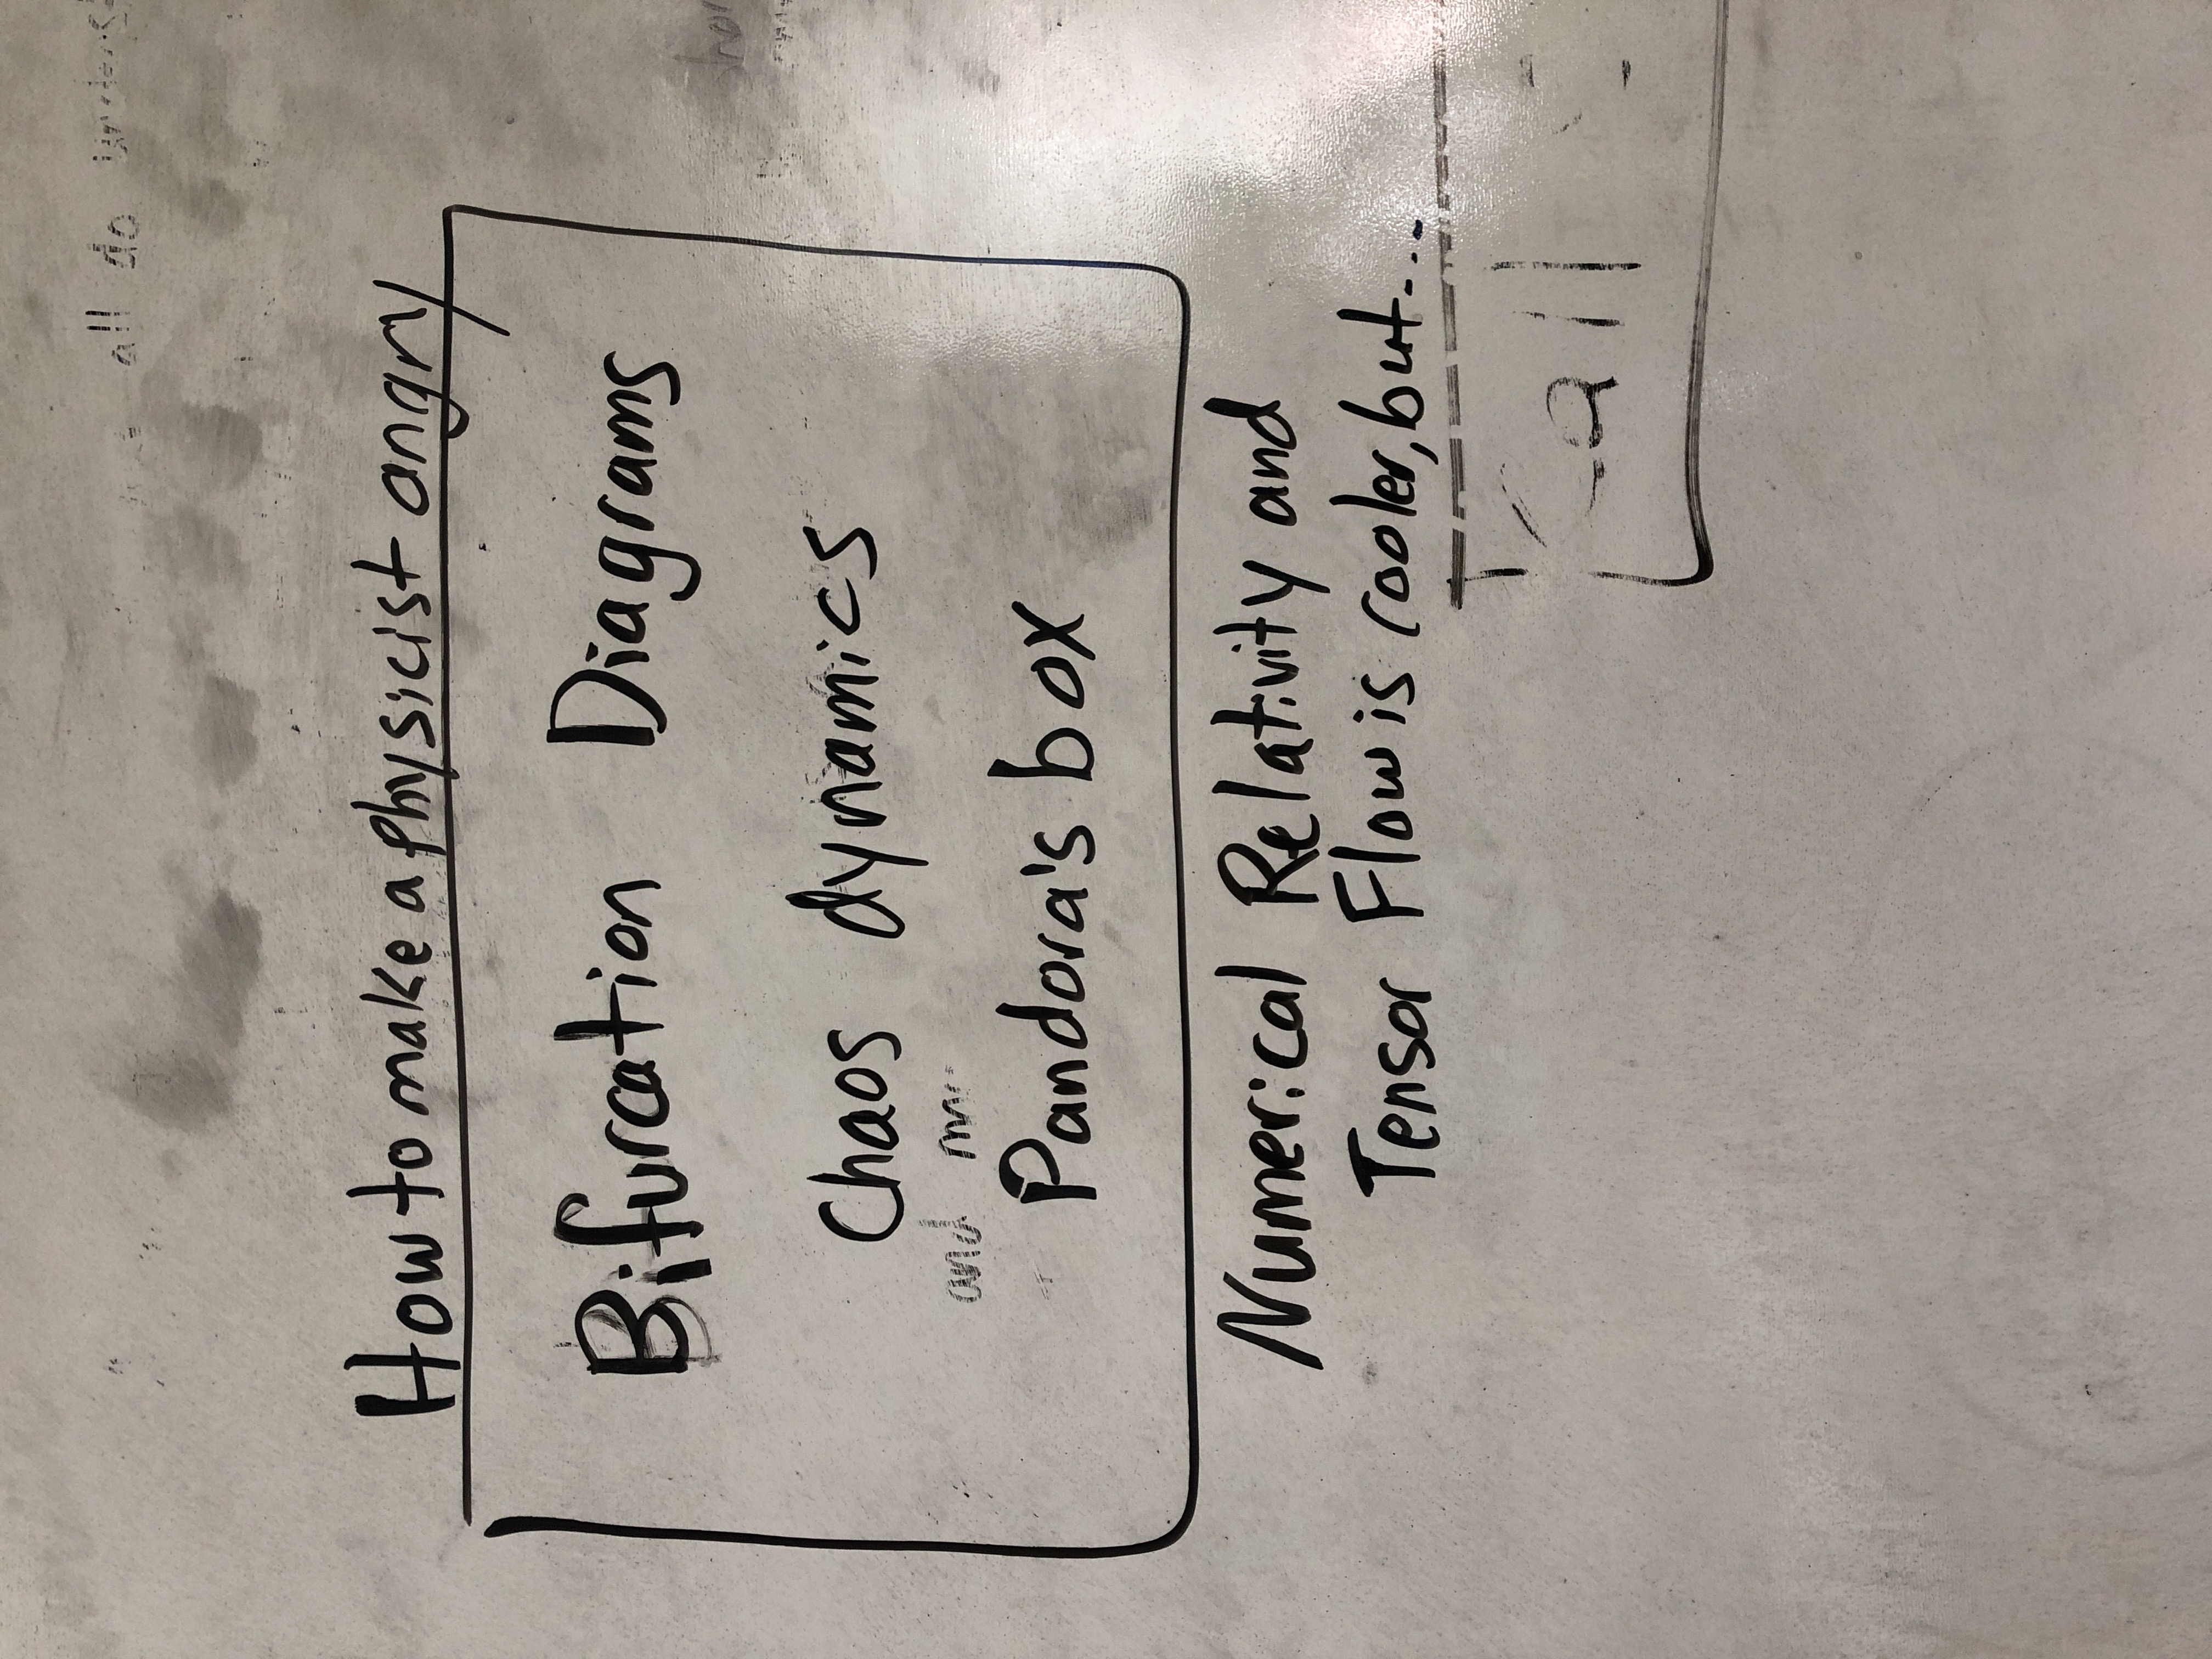 all do
How to make a physicist angry
Bifurcation Diagrams
Chaos dynamics
and
Pandora's box
Numerical Relativity and
Tensor Flow is cooler, but...
Call